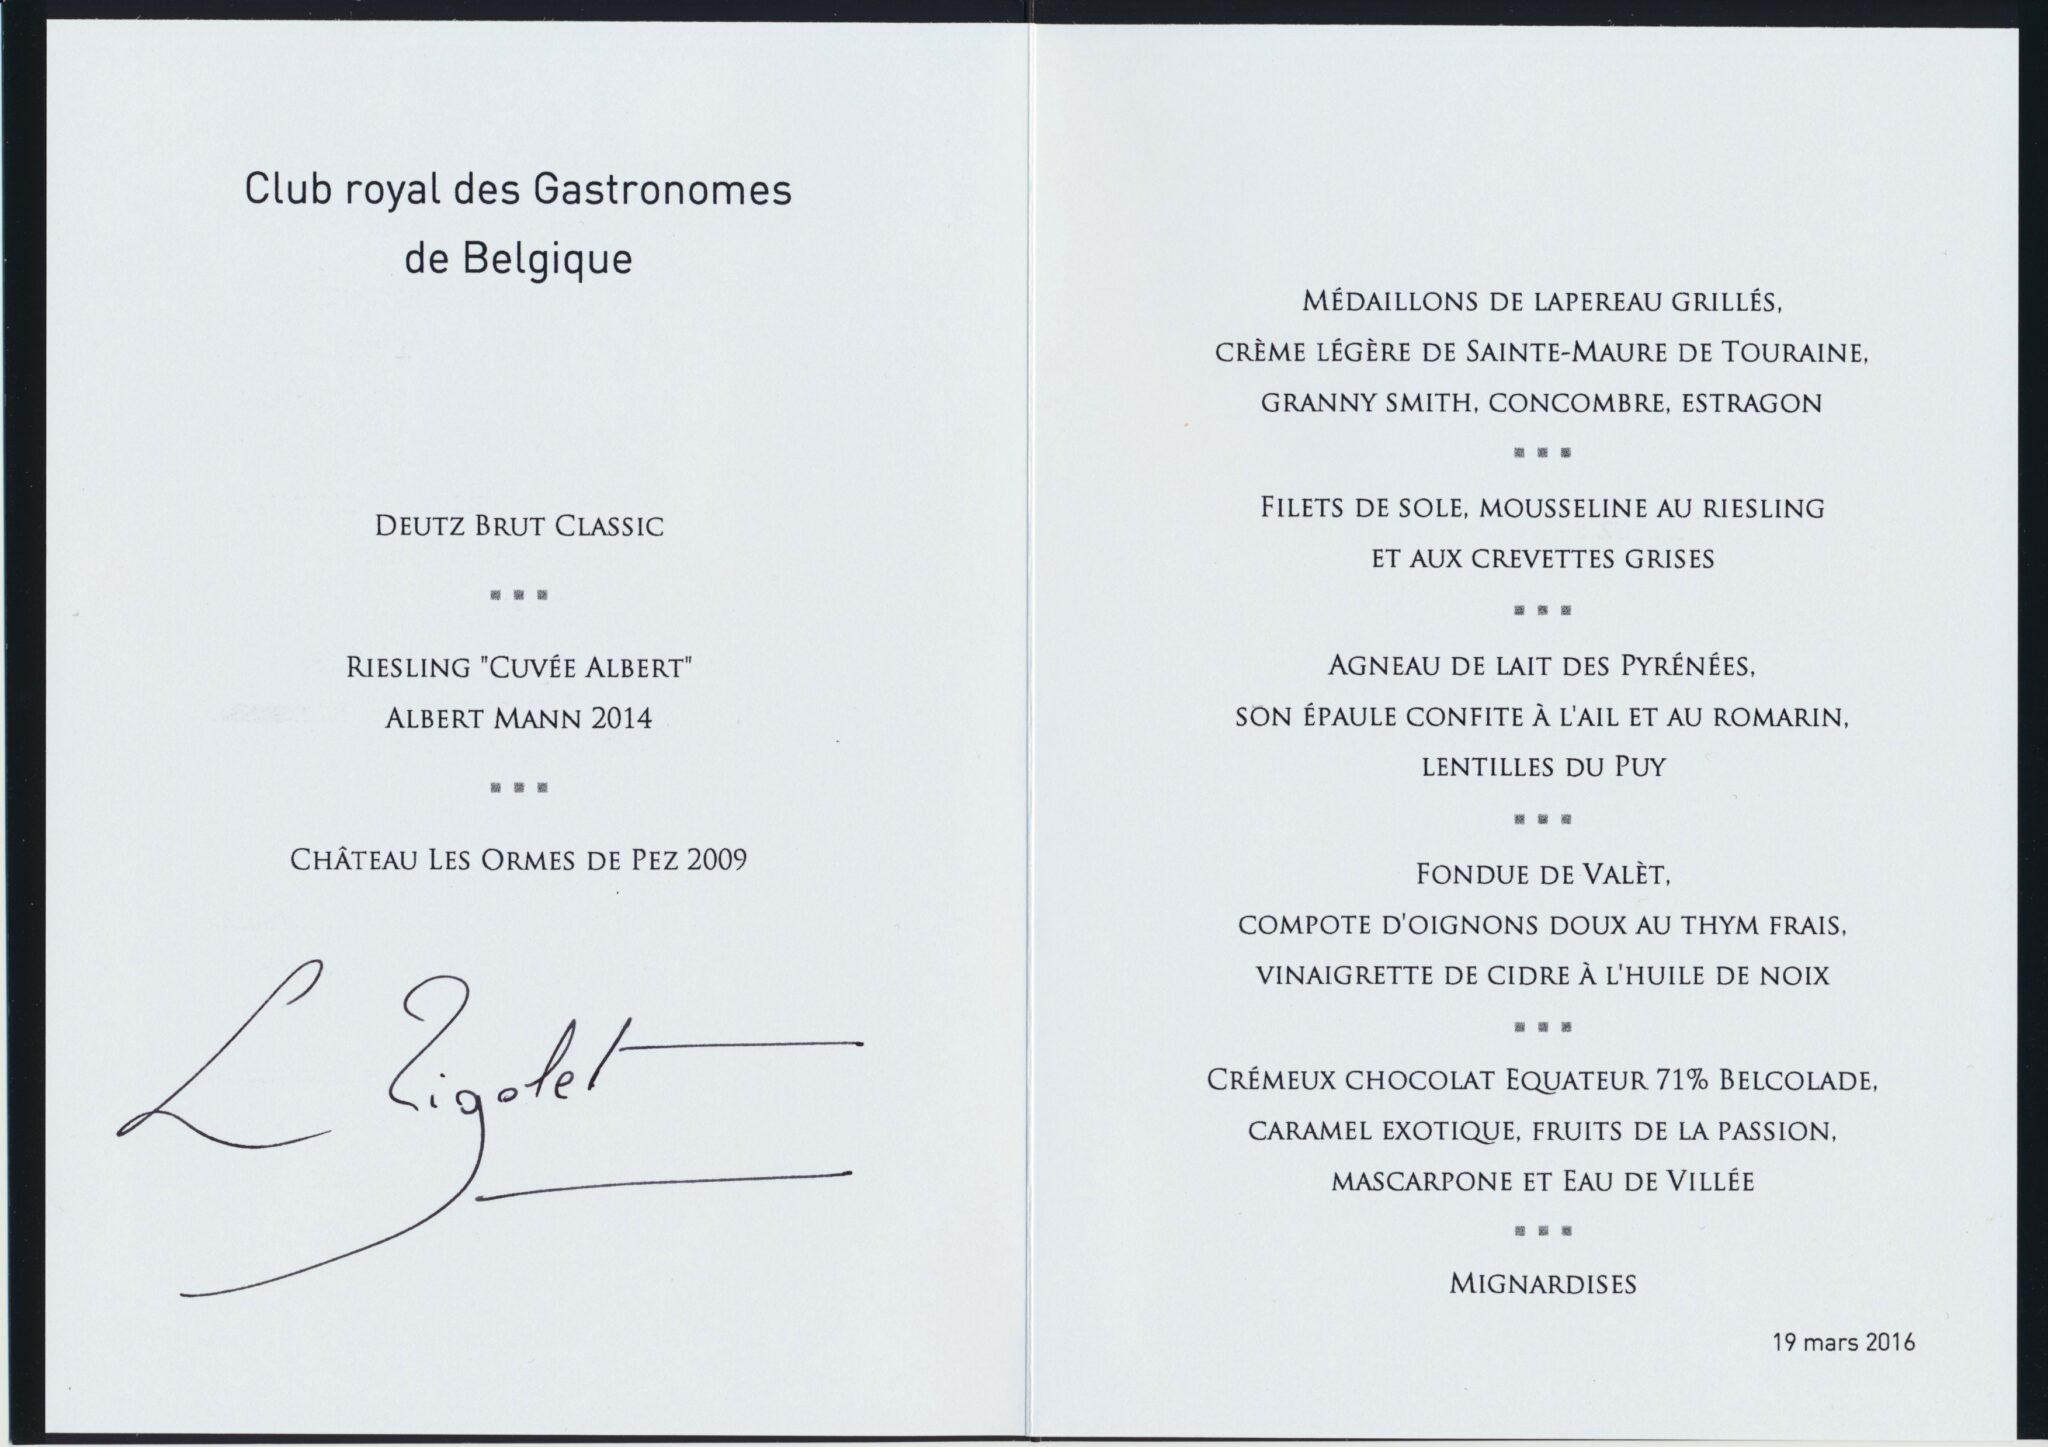 Club royal des Gastronomes
de Belgique
Deutz Brut Classic
Riesling "Cuvée Albert"
Albert Mann 2014
Château Les Ormes de Pez 2009
L Rigolet
Médaillons de lapereau grillés,
crème légère de Sainte-Maure de Touraine,
granny smith, concombre, estragon
Filets de sole, mousseline au riesling
et aux crevettes grises
Agneau de lait des Pyrénées,
son épaule confite à l'ail et au romarin,
lentilles du Puy
Fondue de Valèt,
compote d'oignons doux au thym frais,
vinaigrette de cidre à l'huile de noix
Crémeux chocolat Equateur 71% Belcolade,
caramel exotique, fruits de la passion,
mascarpone et Eau de Villée
Mignardises
19 mars 2016